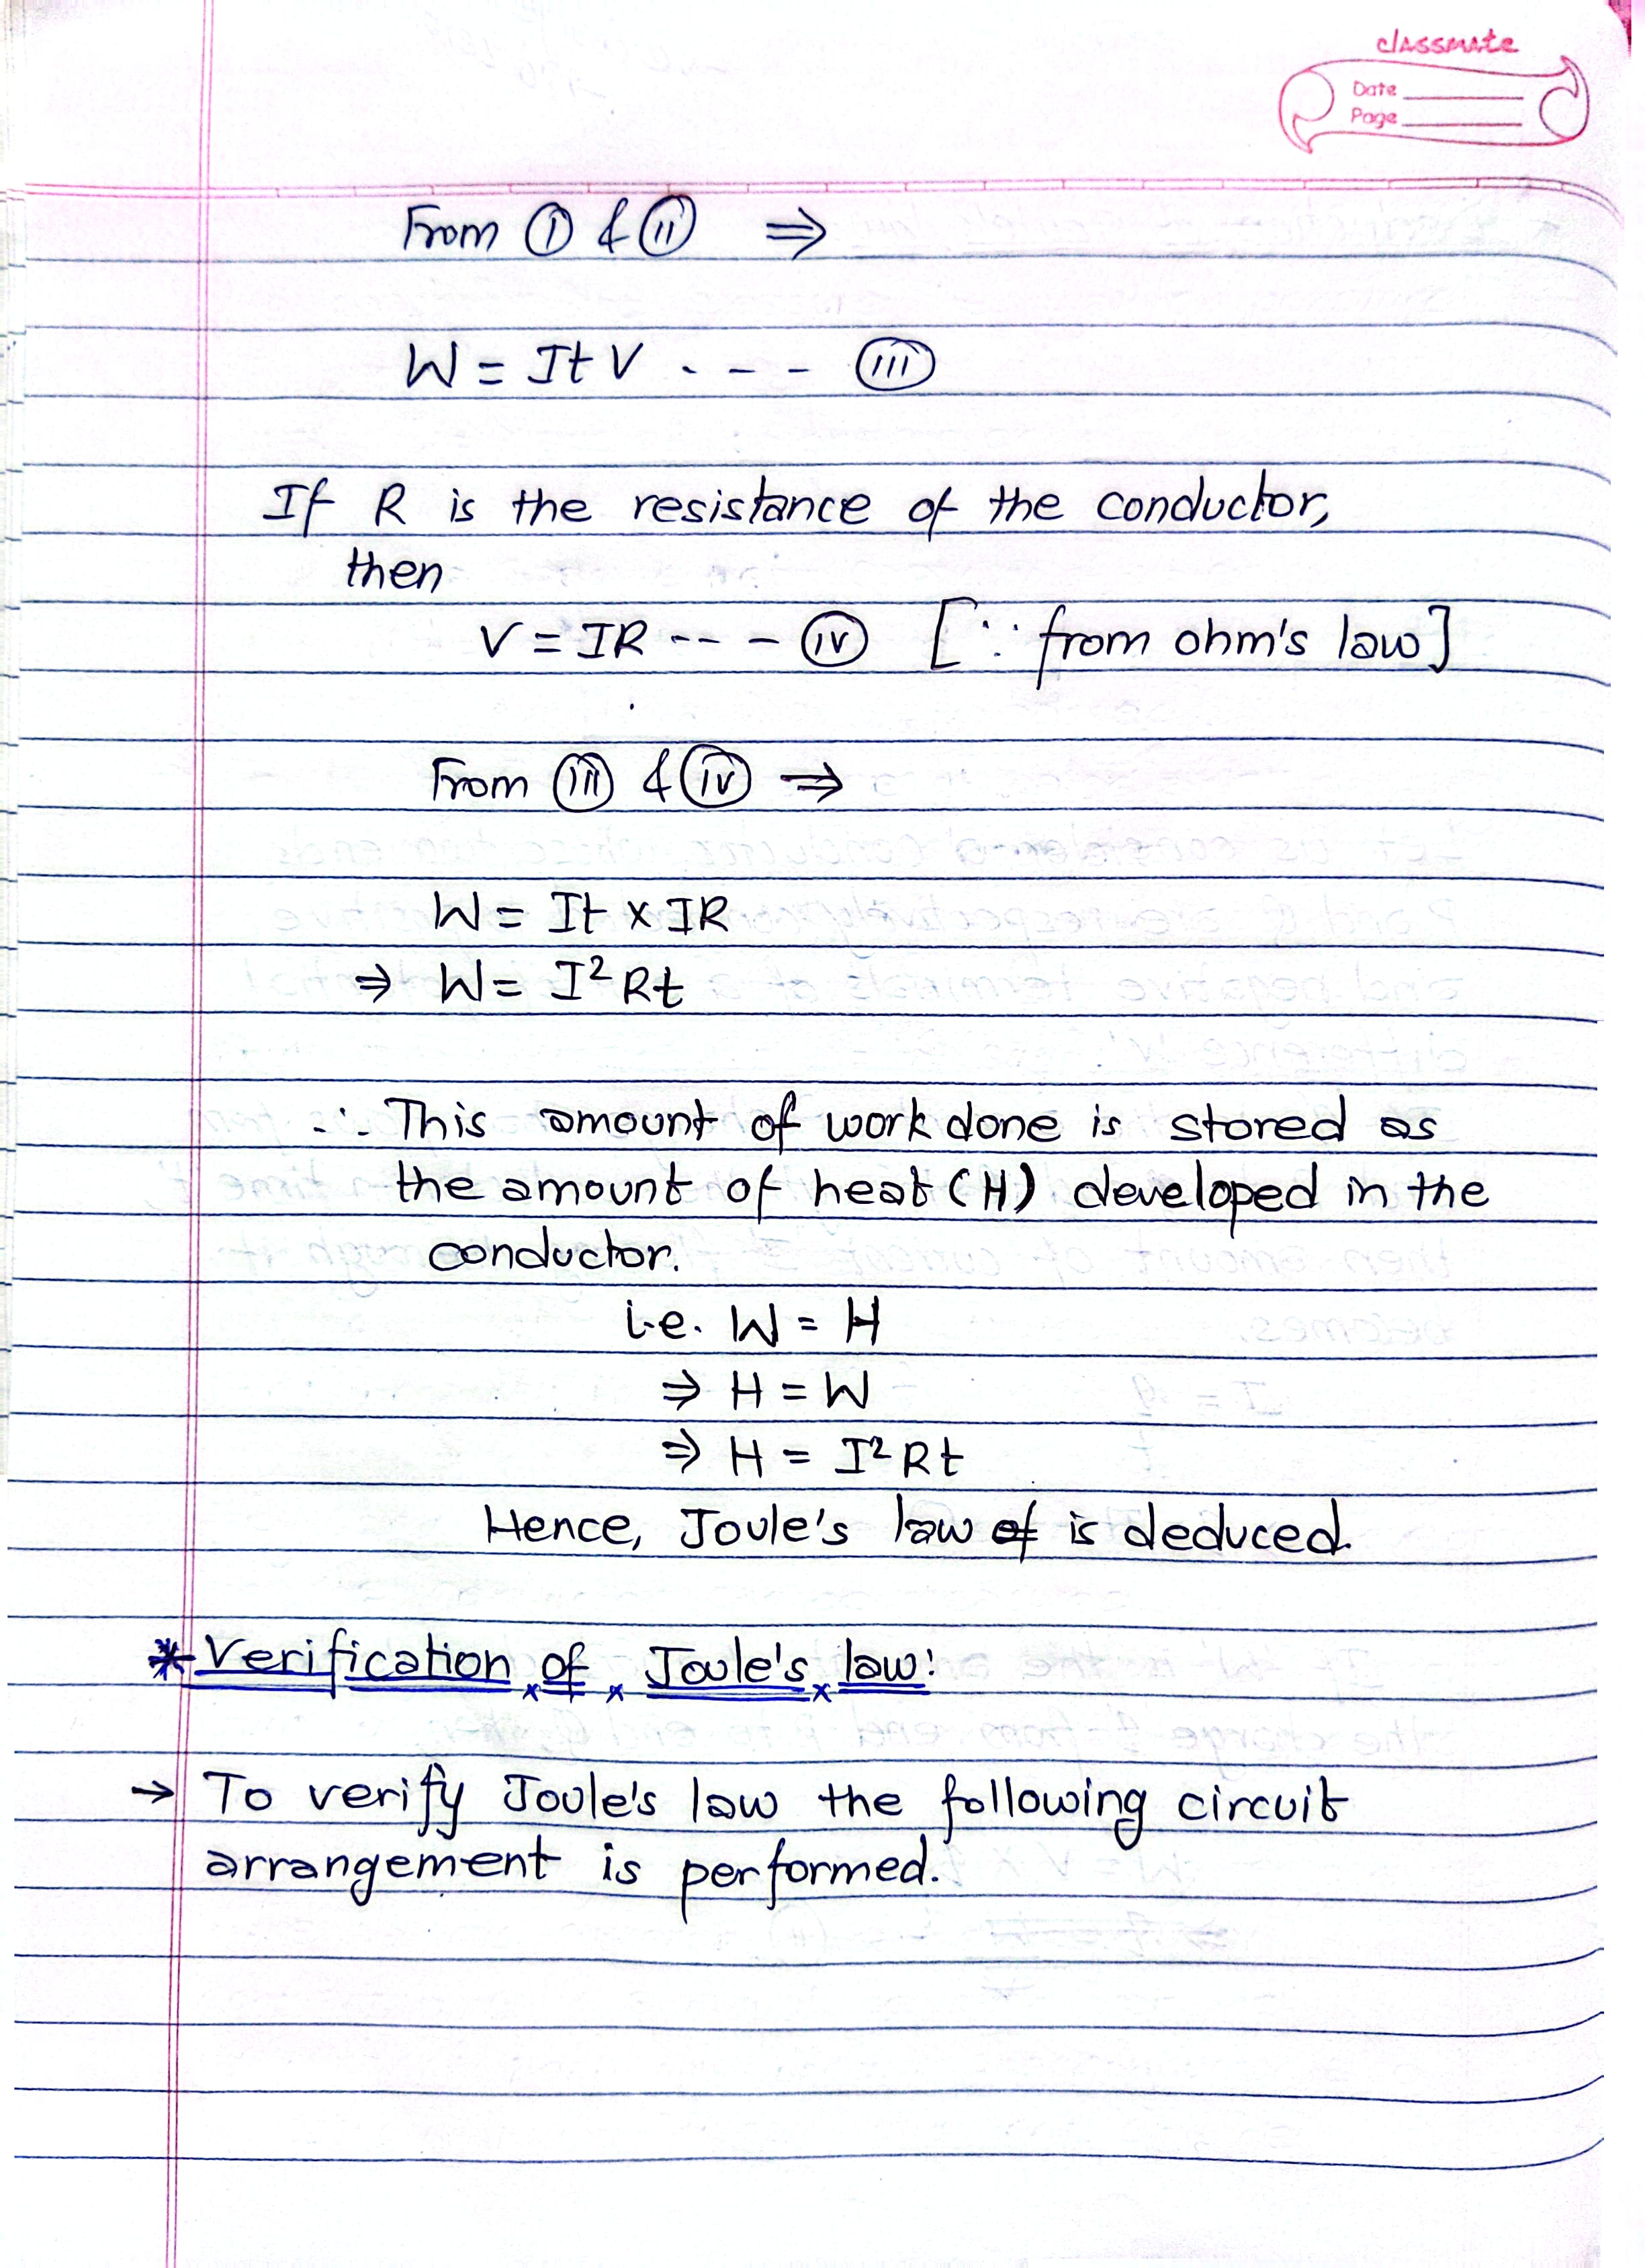 classmate
Date
Page
From (I) & (II) ⇒
W = ItV - - - - (III)
If R is the resistance of the conductor,
then
V = IR - - - - (IV) [∵ from ohm's law]
From (III) & (IV) ⇒
W = It × IR
⇒ W = I² Rt
∴ This amount of work done is stored as
the amount of heat (H) developed in the
conductor.
i.e. W = H
⇒ H = W
⇒ H = I² Rt
Hence, Joule's law of is deduced.
* Verification of Joule's law:
→ To verify Joule's law the following circuit
arrangement is performed.